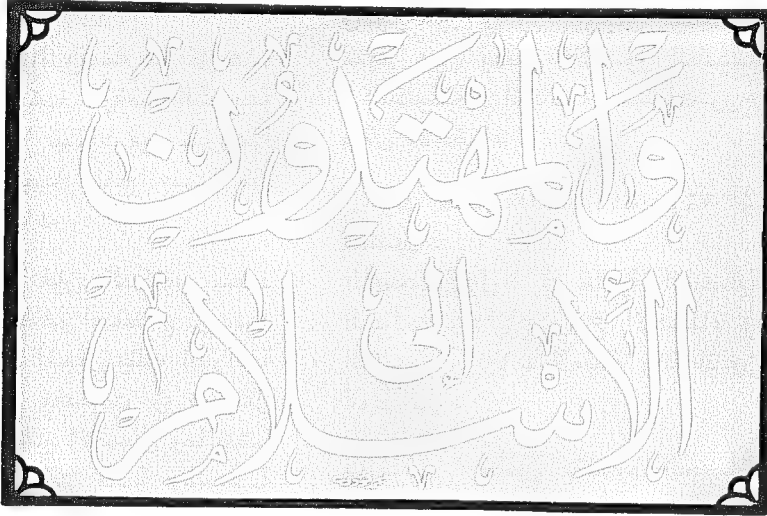 والمهتدون
إلى
الإسلام